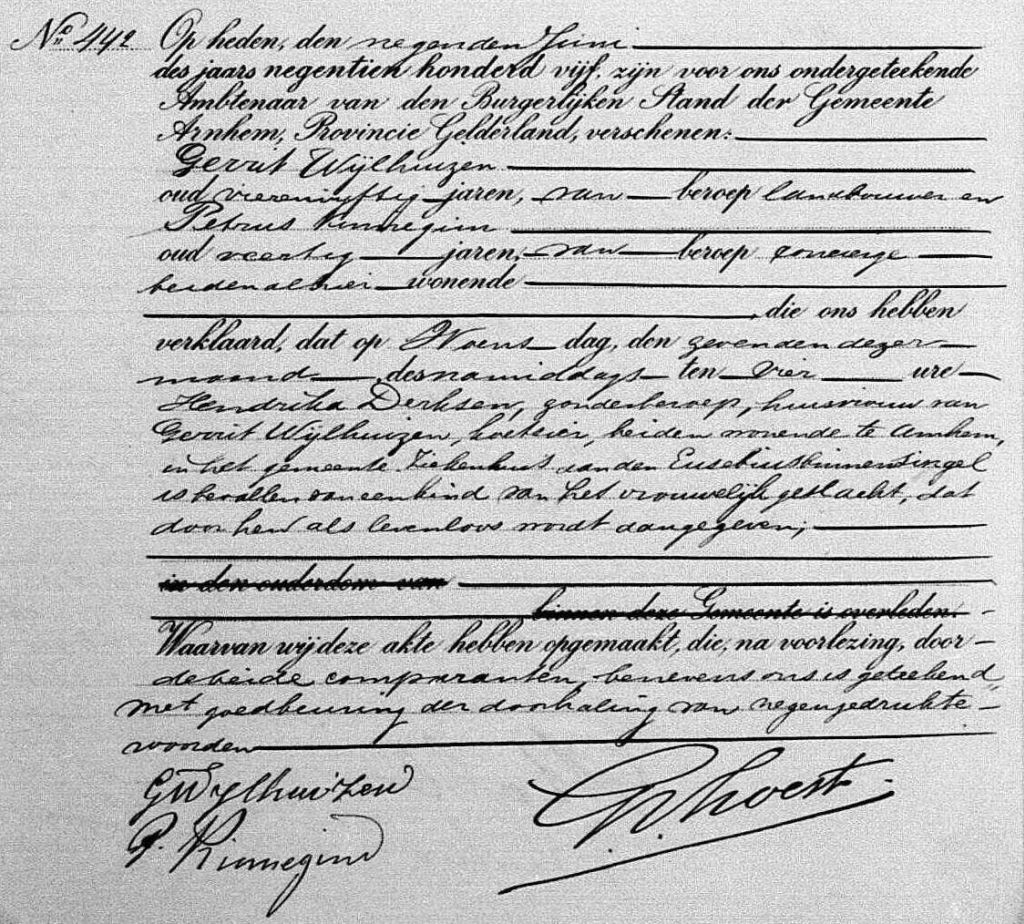 No 442 Op heden, den negenden Juni
des jaars negentien honderd vijf, zijn voor ons ondergeteekende
Ambtenaar van den Burgerlijken Stand der Gemeente
Arnhem, Provincie Gelderland, verschenen:
Gerrit Wijlhuizen
oud vierenvijftig jaren, van beroep landbouwer en
Petrus Kinnegim
oud veertig jaren, van beroep concierge
beiden alhier wonende
, die ons hebben
verklaard, dat op Woens dag, den zevenden dezer
maand, des namiddags ten vier ure
Hendrika Derksen, zonder beroep, huisvrouw van
Gerrit Wijlhuizen, koetsier, beiden wonende te Arnhem,
in het gemeente Ziekenhuis aan den Eusebiusbinnensingel
is bevallen van een kind van het vrouwelijk geslacht, dat
door hen als levenloos wordt aangegeven;
in den ouderdom van
binnen deze Gemeente is overleden.
Waarvan wij deze akte hebben opgemaakt, die, na voorlezing, door
de beide comparanten, benevens ons is geteekend,
met goedkeuring der doorhaling van negen gedrukte
woorden
GWylhuizen
P. Kinnegim